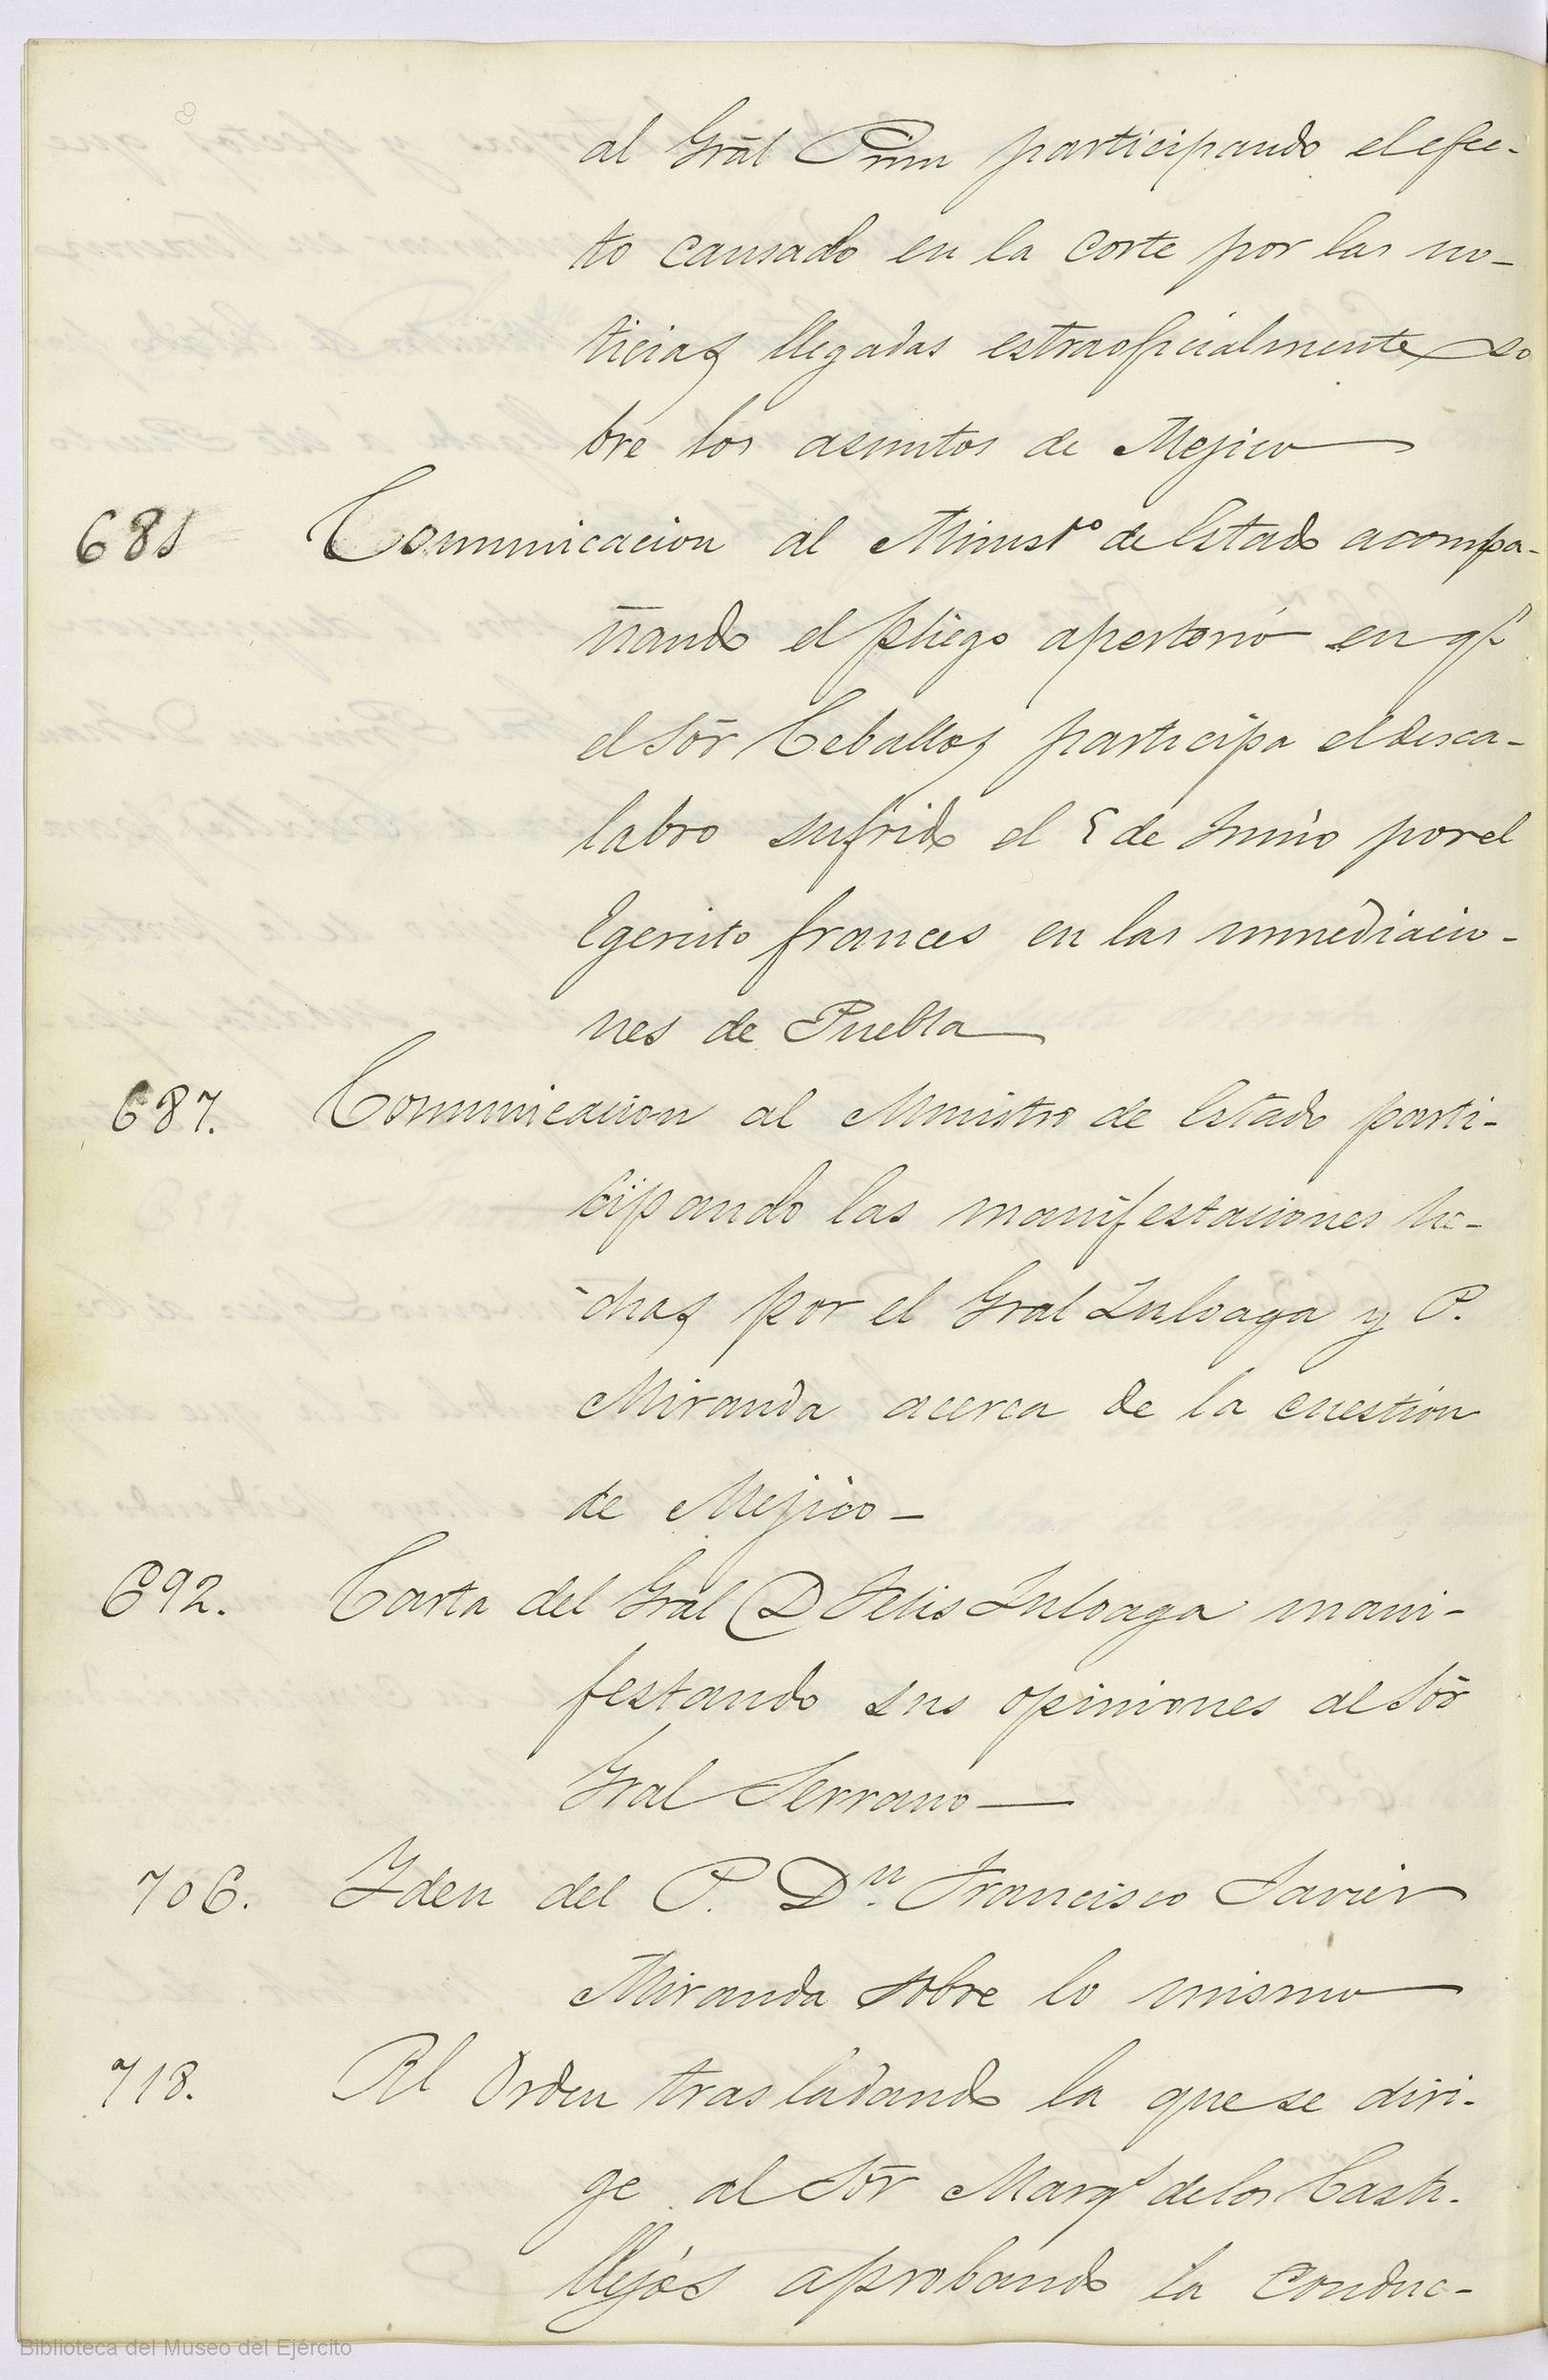 al Grāl Prim participando el efec-
to causado en la Corte por las no-
ticias llegadas estraoficialmente so
bre los asuntos de Mejico
681 Comunicacion al Minist.º de Estado acompa-
ñando el pliego apertorio en q.e
el Sōr Ceballos participa el desca-
labro sufrido el 5 de Junio por el
Egercito frances en las inmediacio-
nes de Puebla
687. Comunicacion al Ministro de Estado parti-
cipando las manifestaciones he-
chas por el Gral Zuloaga y P.
Miranda acerca de la cuestion
de Mejico -
692. Carta del Gral D Felis Zuloaga mani-
festando sus opiniones al Sōr
Gral Serrano
706. Yden del P. D.n Francisco Javier
Miranda sobre lo mismo
718. Rl Orden trasladando la que se diri-
ge al Sōr Marq.s de los Casti-
llejos aprobando la conduc-
Biblioteca del Museo del Ejército